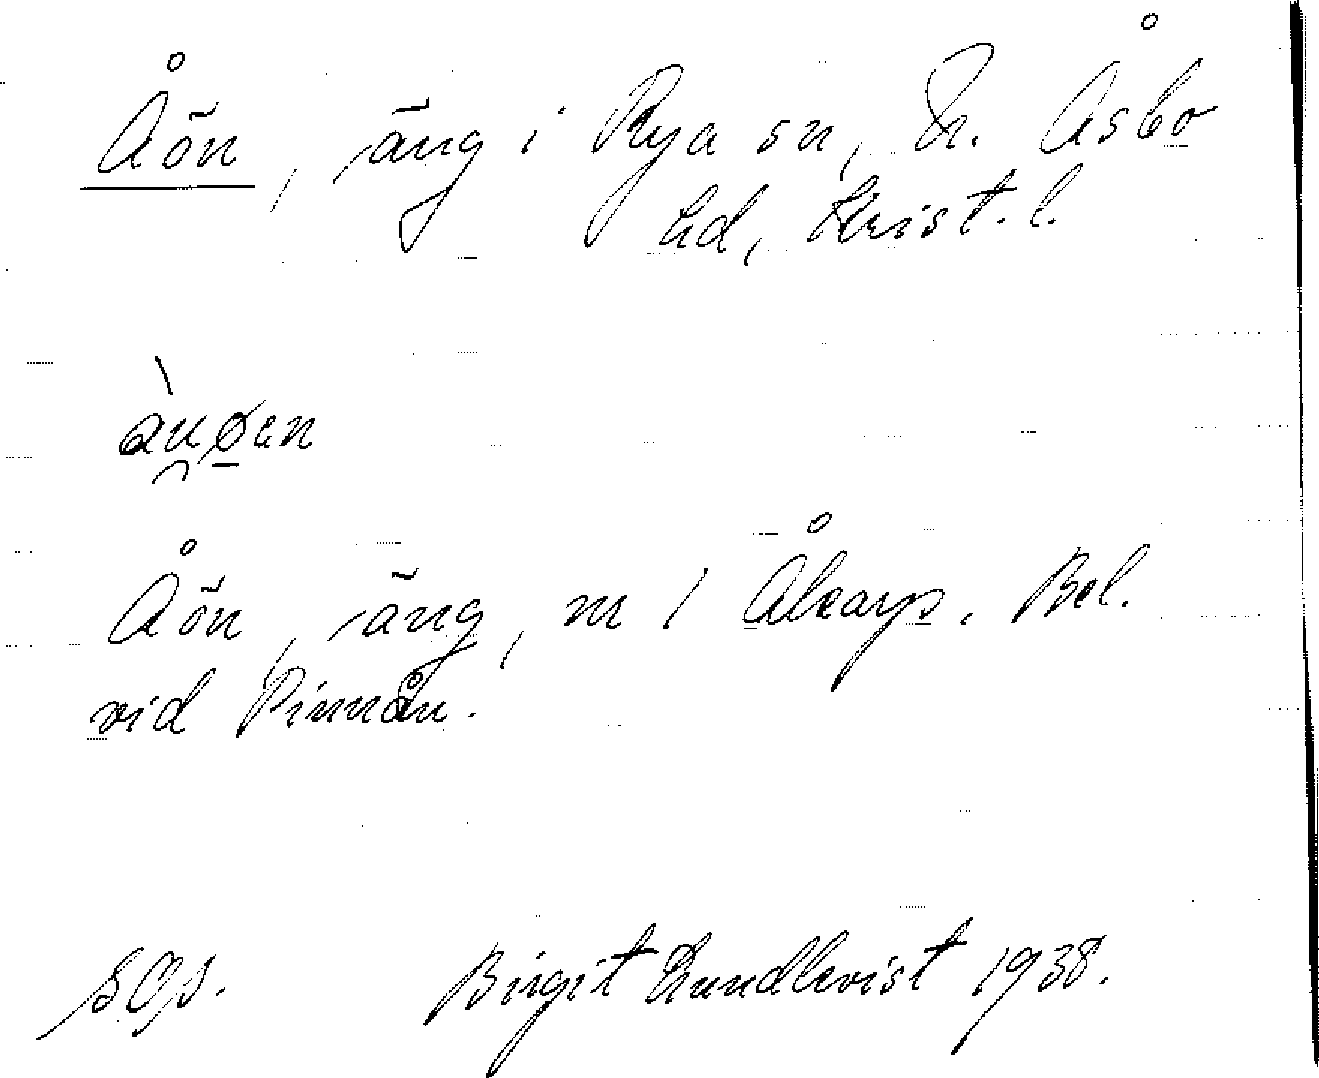 Åön, äng i Rya sn, N. Åsbo
hd, Krist. l.
Åön, äng, nr 1 Åkarp. Bel.
vid Pinnån.
Birgit Lundkvist 1938.